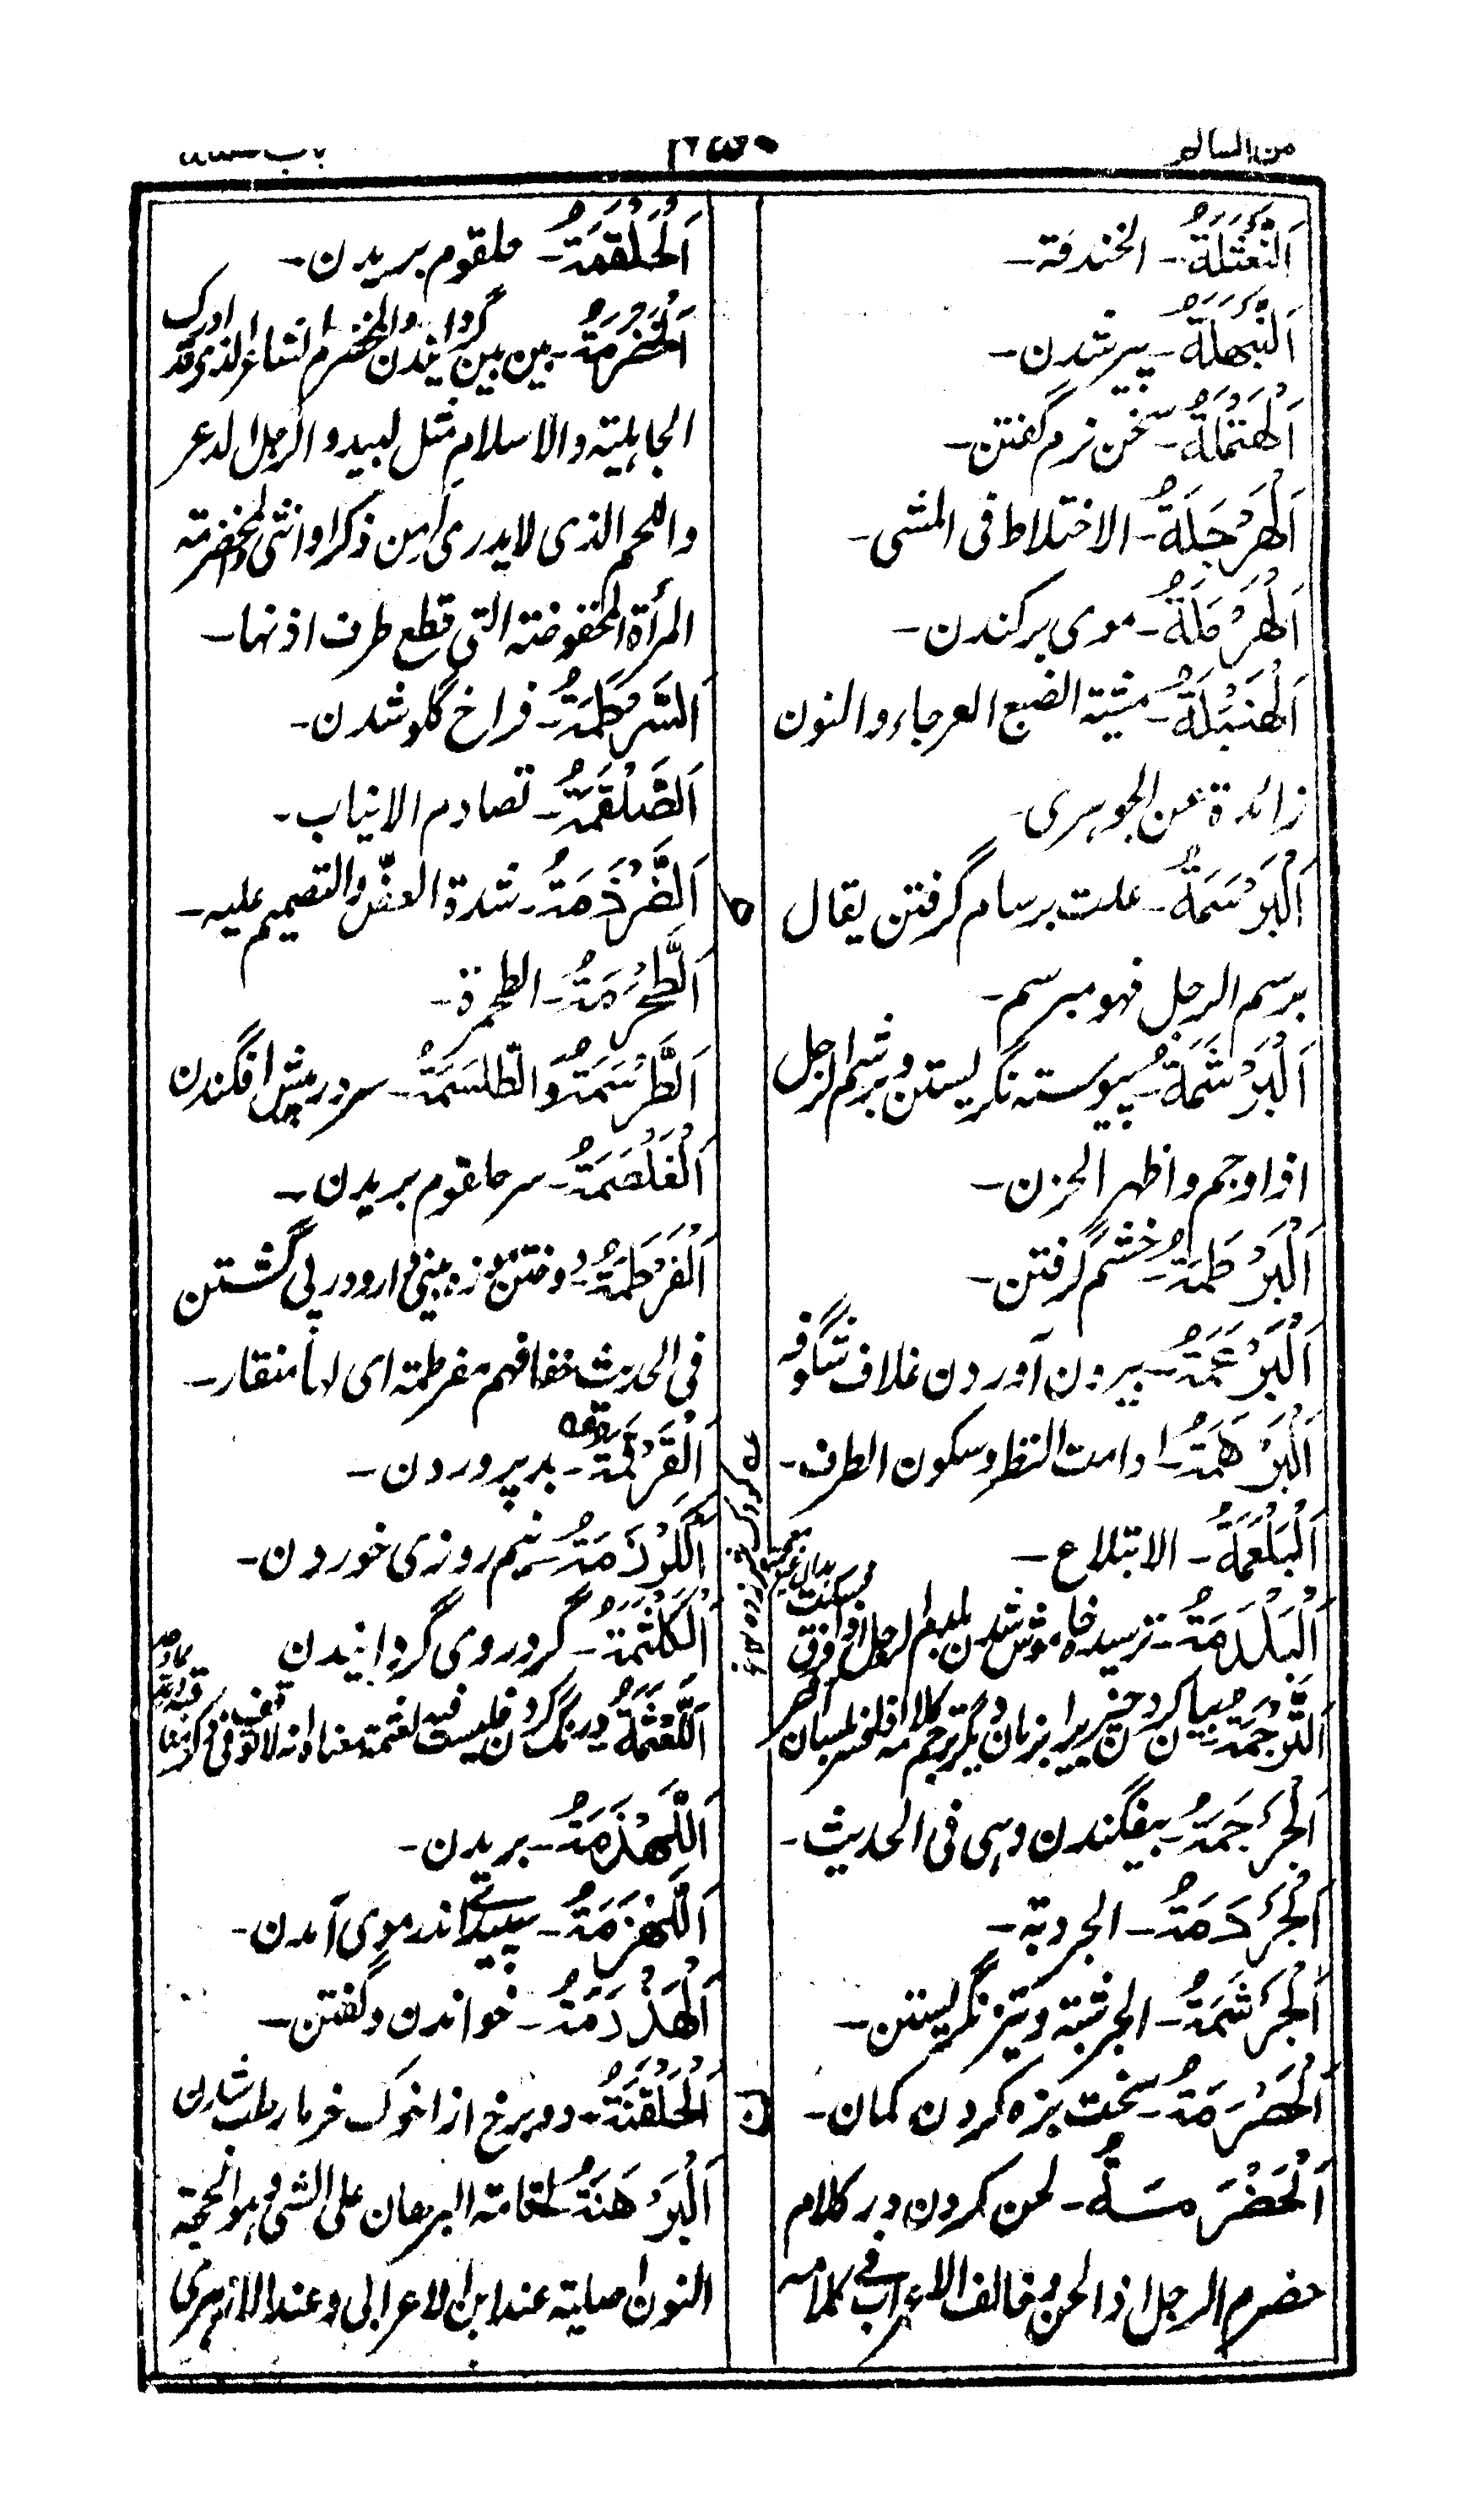 من السالم
باب
اَلنَّعْثَلَةُ - الخندفة -
اَلنَّهْبَلَةُ - پیر شدن -
اَلْهَتْمَلَةُ - سخن نرم گفتن -
اَلْهَرْجَلَةُ - الاختلاط فی المشی -
اَلْهَرْمَلَةُ - موی برکندن -
اَلْهَنْبَلَةُ - مشیة الضبع العرجاء و النون
زائدة عن الجوہری -
اَلْبَرْسَمَةُ - علت برسام گرفتن یقال
برسم الرجل فهو مبرسم -
اَلْبَرْشَمَةُ - پیوسته نگریستن و برشم الرجل
اذا وجم و اظهر الحزن -
اَلْبَرْطَمَةُ - خشم گرفتن -
اَلْبَرْعَمَةُ - بیرون آوردن غلاف شگوفه
اَلْبَرْهَمَةُ - ادامت النظر و سکون الطرف -
اَلْبَلْعَمَةُ - الابتلاع -
اَلْبَلْدَمَةُ - ترسیده خاموش شدن بلدم الرجل اذا فرق
اَلتَّرْجَمَةُ - بیان کردن چیزیرا بزبان دیگر ترجم کلامه اذا فسر بلسان
اَلْجَرْجَمَةُ - بیفگندن وہی فی الحدیث -
اَلْجَرْدَمَةُ - الجردبة -
اَلْجَرْشَمَةُ - الجرشبة و تیز نگریستن -
اَلْحَصْرَمَةُ - سخت بزه کردن کمان -
اَلْحَضْرَمَةُ - لحن کردن در کلام
حضرم الرجل اذا لحن و خالف الاعراب فی کلامه
م
ن
اَلْحَلْقَمَةُ - حلقوم بریدن -
اَلْخَضْرَمَةُ - بین بین گردانیدن و المخضرم الشاعر الذی قد ادرک
الجاہلیة و الاسلام مثل لبید و الرجل الدعی
و اللحم الذی لا یدری أمن ذکر او انثی و المخضرمة
المرأة المخفوضة التی قطع طرف اذنها -
اَلسَّرْطَمَةُ - فراخ گلو شدن -
اَلصَّلْقَمَةُ - تصادم الانیاب -
اَلضَّرْذَمَةُ - شدة العض و التصمیم علیه -
اَلطَّحْرَمَةُ - الطحمرة -
اَلطَّرْسَمَةُ وَ الطَّلْسَمَةُ - سر در پیش افگندن
اَلْغَلْصَمَةُ - سر حلقوم بریدن -
اَلْفَرْطَمَةُ - دوختن موزه بینی دار و در پی گشتن
فی الحدیث خفافهم مفرطمة ای لها منقار -
اَلْقَرْقَمَةُ - بد پروردن -
اَلْکَرْذَمَةُ - نیم روزی خوردن -
اَلْکَلْثَمَةُ - گرد روی گردانیدن
اَللَّعْثَمَةُ - درنگ کردن
اَللَّهْذَمَةُ - بریدن -
اَللَّهْزَمَةُ - سپیدی اندر موی آمدن -
اَلْهَذْرَمَةُ - خواندن و گفتن -
اَلْحَلْقَنَةُ - دو برخ از انوک خرما رطب شدن
اَلْبَرْهَنَةُ - اقامة البرهان علی الشی و ہو الحجة
النون اصلیة عند ابن الاعرابی و عند الازہری